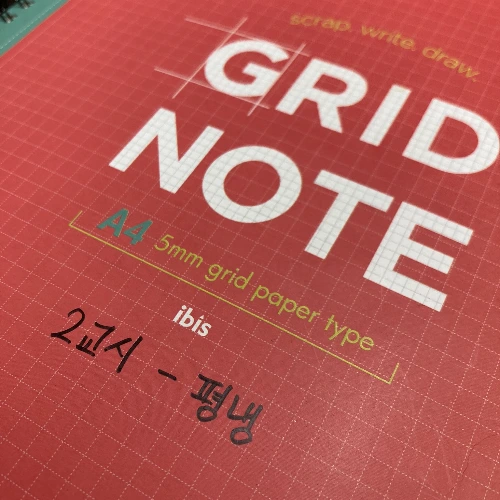 scrap. write. draw.
GRID
NOTE
A4 5mm grid paper type
ibis
2교시 - 평냉